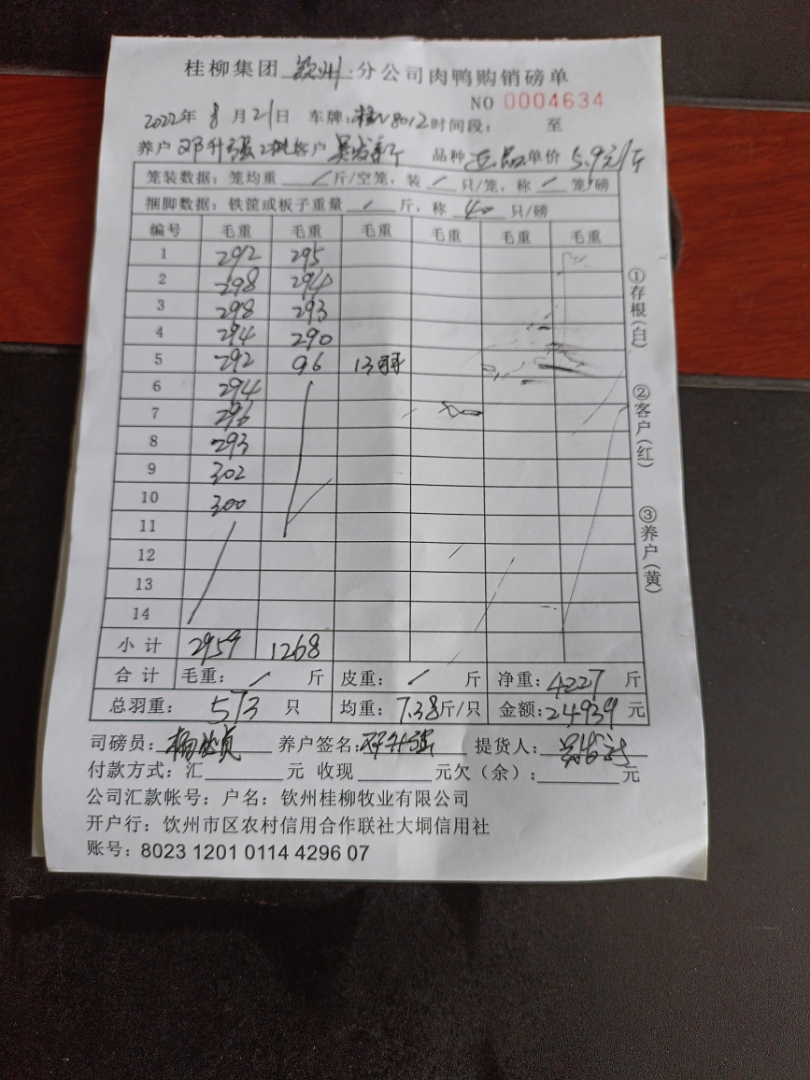 桂柳集团 钦州 分公司肉鸭购销磅单
NO 0004634
2022年 8月21日 车牌: 8012 时间段: 至
养户 邓升强 2批 客户 吴发新 品种 正品 单价 5.9元/斤
笼装数据: 笼均重 / 斤/空笼, 装 / 只/笼, 称 / 笼/磅
捆脚数据: 铁筐或板子重量 / 斤, 称 40 只/磅
编号 毛重 毛重 毛重 毛重 毛重 毛重
1 292 295
2 298 294
3 298 293
4 294 290
5 292 96 13羽
6 294
7 296
8 293
9 302
10 300
11
12
13
14
小计 2959 1268
合计 毛重: / 斤 皮重: / 斤 净重: 4227 斤
总羽重: 573 只 均重: 7.38斤/只 金额: 24939 元
司磅员: 养户签名: 邓升强 提货人: 吴发新
付款方式: 汇 元 收现 元欠(余): 元
公司汇款帐号: 户名: 钦州桂柳牧业有限公司
开户行: 钦州市区农村信用合作联社大垌信用社
账号: 8023 1201 0114 4296 07
①存根(白)
②客户(红)
③养户(黄)